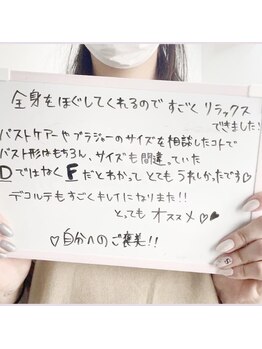 全身をほぐしてくれるので すごく リラックス
できました!
バストケアーやブラジャーのサイズを相談したコトで
バスト形はもちろん、サイズも間違っていた
DではなくFだとわかって とても うれしかったです♡
デコルテもすごくキレイになりました!!
とっても オススメ♡♥
♡自分へのご褒美!!